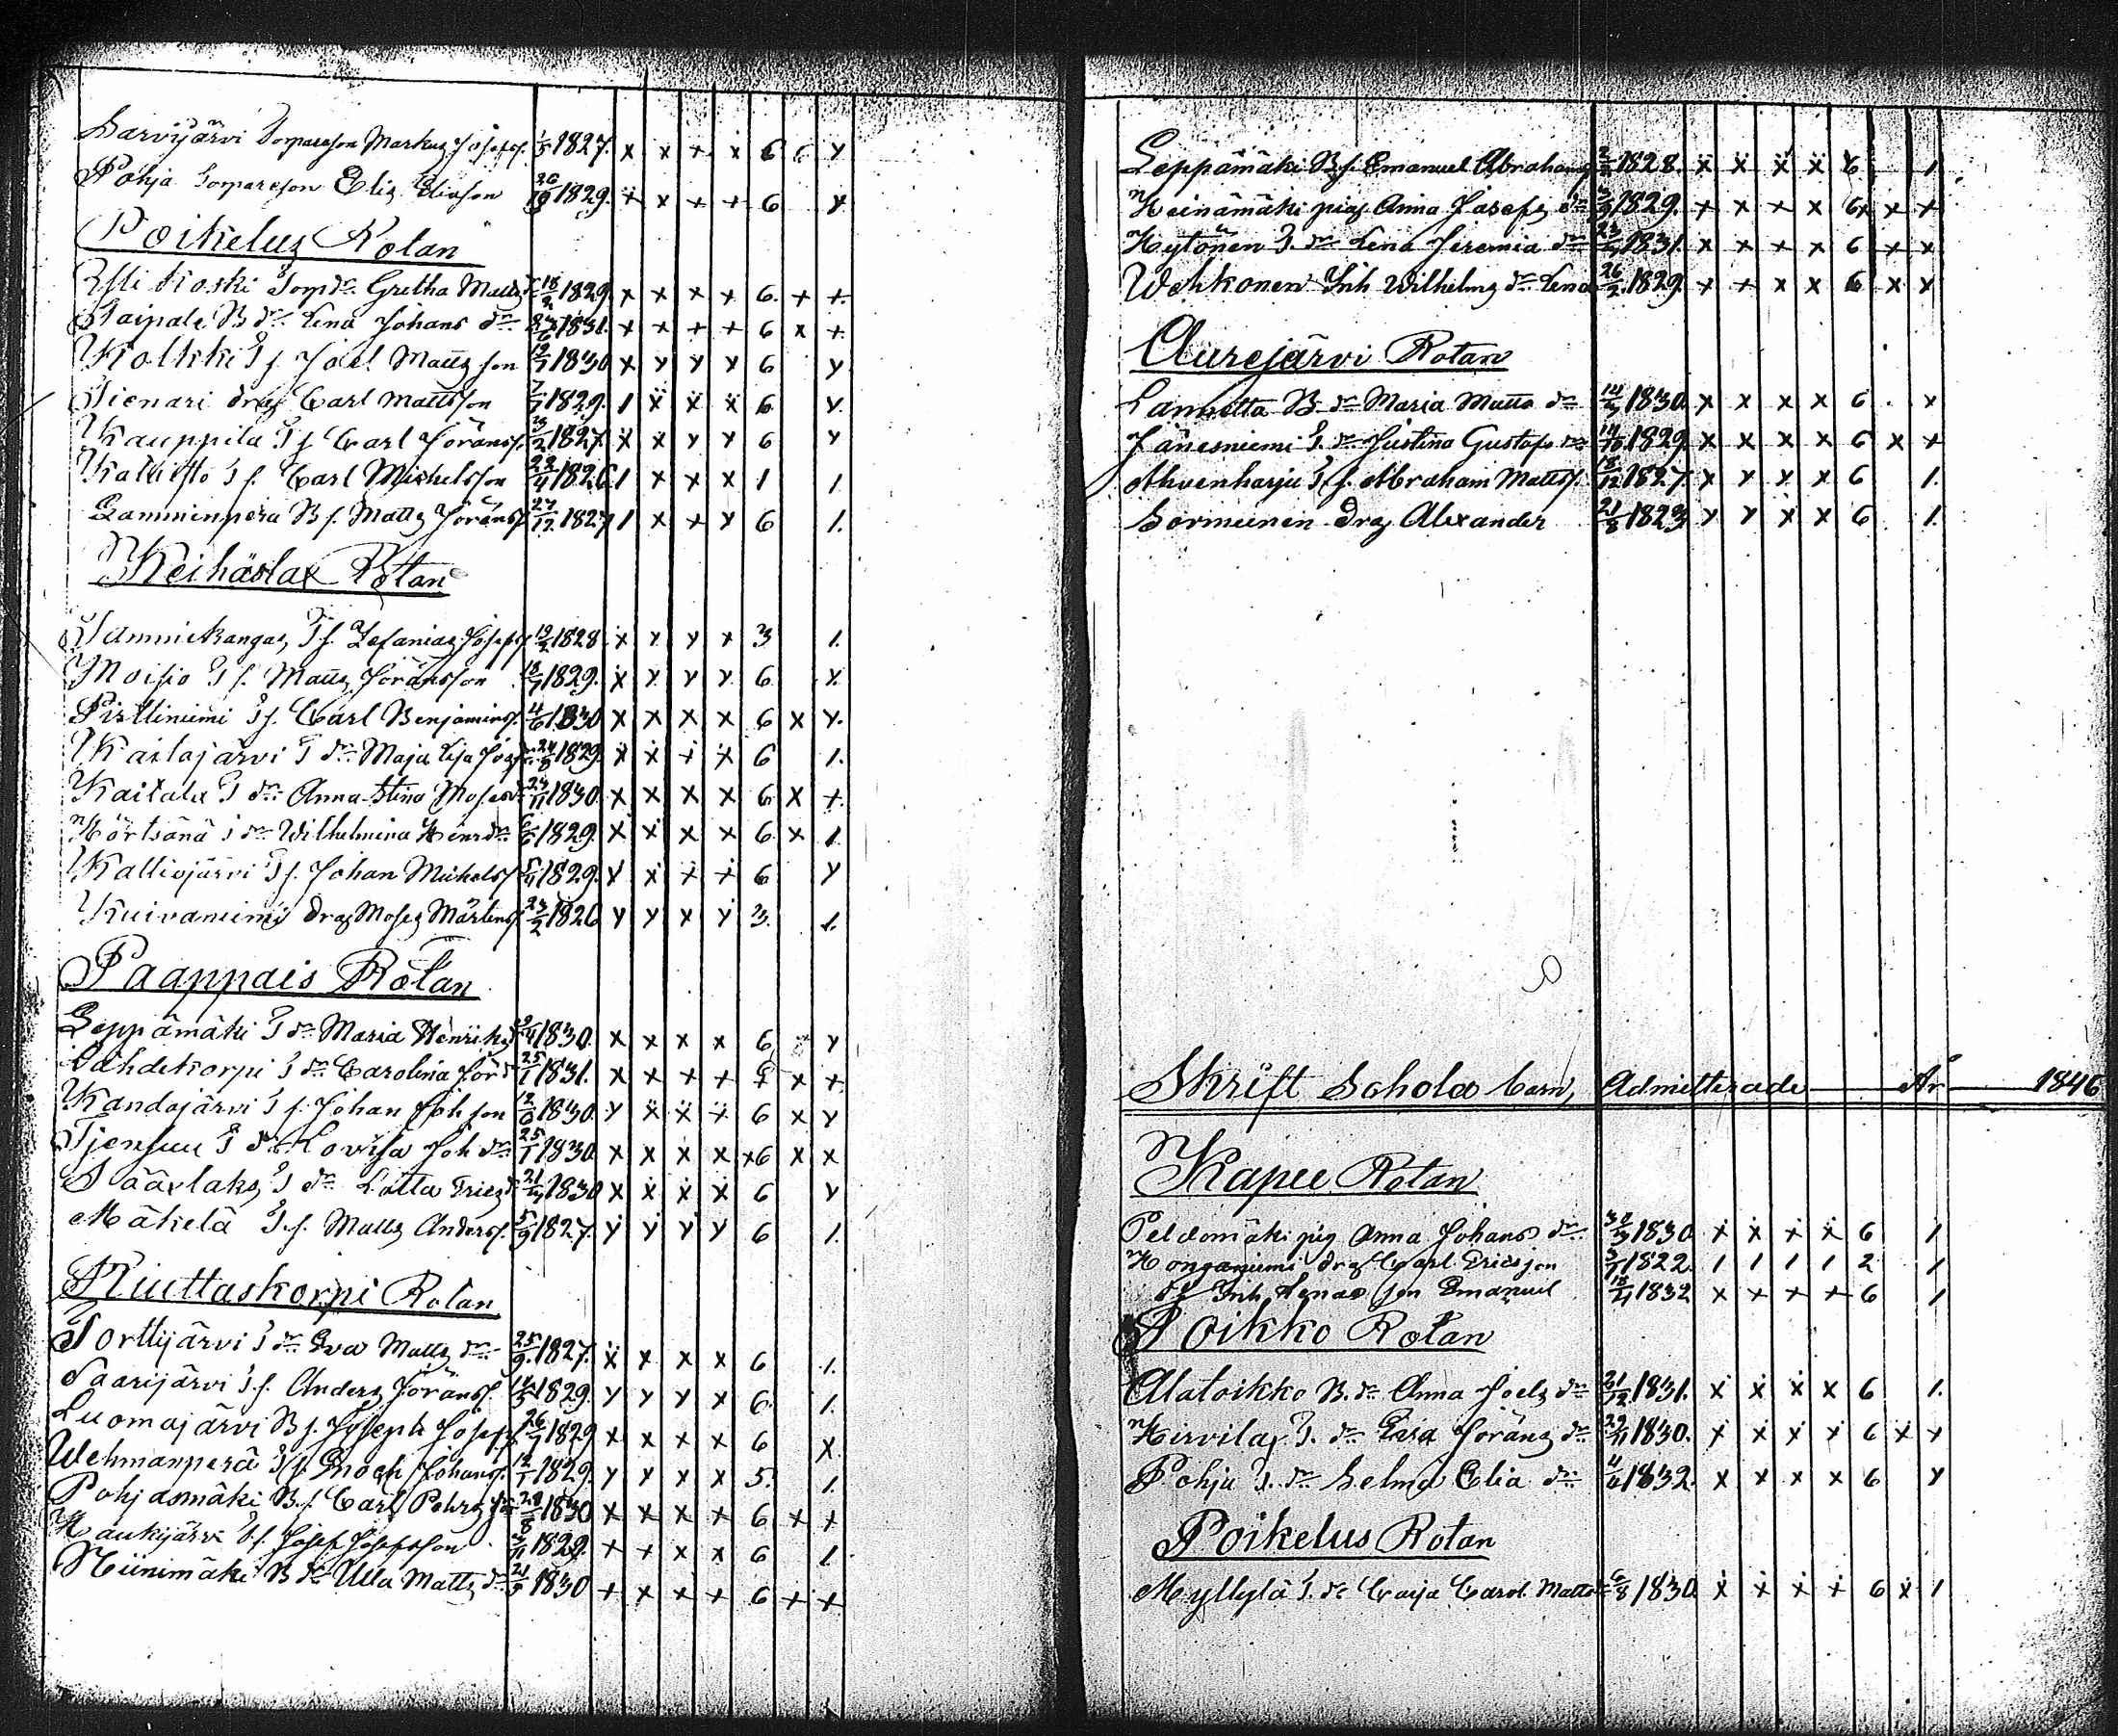 Sarvijärvi Sorpareson Markus Josefs. 1/5 1827. x x x x 6 6 x
Pohja Sorpareson Elis Eliasson 26/10 1829. x x x x 6 x
Poikelus Rotan
Koski Gretha Matts 18/2 1829 x x x x 6 x x
Taipale B dr Lena Johans dr 1831. x x x x 6 x x
Kolkki T f Joel Matts son 19/7 1830 x x x x 6 x
Tienari drag Carl Mattsson 7/7 1829. 1 x x x 6 x
Kauppila T f Carl Jöransf. 1827. x x x x 6 x
Kaluisto T f. Carl Michelsson 22/4 1826 1 x x x 1 1
Lamminperä B f. Matts Jöransf 27/12 1827 1 x x x 6 1.
Keihäslax Rotan
Tamnickangas T f. Zefanias Josefsf. 19/2 1828 x x x x 3 1.
Moisio T f. Matts Jöransson 18/7 1829. x x x x 6 x.
Pirttiniemi T f. Carl Benjaminsf. 4/6 1830 x x x x 6 x x.
Kaitajärvi T dr Maja Lisa 24/8 1829. x x x x 6 1.
Kaitala T dr Anna Stina Moses 23/11 1830. x x x x 6 x x.
Hörtsänä T dr Wilhelmina Henr dr 6/6 1829. x x x x 6 x 1
Kalliojärvi T f. Johan Michelsf 5/4 1829. x x x x 6 x
Kuivaniemi drag Moses Mårtensf 23/2 1826 x x x x 3. 1.
Paappais Rotan
Leppämäki T dr Maria Henriks 1830. x x x x 6 x
Vahdekorpi T dr Carolina Jör dr 25/1 1831. x x x x x x
Kandojärvi T f. Johan Joh son 12/8 1830. x x x x 6 x x
Tjensuu T dr Lovisa Joh dr 25/1 1830 x x x x x6 x x
Sääxlaks T dr Lotta Erics dr 21/4 1830 x x x x 6 x
Mäkelä T. f. Matts Andersf. 5/9 1827. x x x x 6 1.
Riuttaskorpi Rotan
Torttijärvi T dr Eva Matts dr 25/9 1827. x x x x 6 1.
Saarijärvi T. f. Anders Jöransf. 1829. x x x x 6 1.
Luomajärvi B f. Joseph Josefsf 26/7 1829 x x x x 6 x
Wehmanperä T f. Enoch Johansf. 12/1 1829. x x x x 5. 1.
Pohjasmäki B. f Carl Pehrs son 28/8 1830 x x x x 6 x x
Haukijärvi T f. Josef Josefsson 3/11 1829. x x x x 6 1.
Niinimäki B dr Ulla Matts dr 21/9 1830 x x x x 6 x x
Leppämäki B f. Emanuel Abrahams 1828. x x x x 6 1
Heinämäki pigs Anna Josefs dr 3/9 1829. x x x x 6x x x
Hytönen T. dr Lena Jeremia dr 1831. x x x x 6 x x
Wehkonen Inh Wilhelms dr Lena 26/2 1829. x x x x 6 x x
Aurejärvi Rotan
Lannetta B dr Maria Matts dr 1830. x x x x 6 . x
Jänesniemi T. dr Justina Gustafs dr 14/10 1829. x x x x 6 x x
Ahvenharju T f. Abraham Mattsf. 18/12 1827. x x x x 6 1.
Sormunen drag Alexander 21/8 1823 x x x x 6 1.
Skrift Schola barn, Admitterade År 1846
Kapee Rotan
Peldomäki pig Anna Johans dr 1830 x x x x 6 1
Honganiemi drag Carl Ericsson 1822. 1 1 1 1 2 1
Inh Lenas son Emanuel 18/4 1832 x x x x 6 1
Poikko Rotan
Alatoikko B. dr Anna Joels dr 21/12 1831. x x x x 6 1.
Hirvilax T. dr Lisa Jörans dr 29/11 1830. x x x x 6 x x
Pohja T. dr Selma Elia dr 4/6 1832. x x x x 6 x
Poikelus Rotan
Myllylä T. dr Caija Carol. Matts 6/8 1830. x x x x 6 x 1